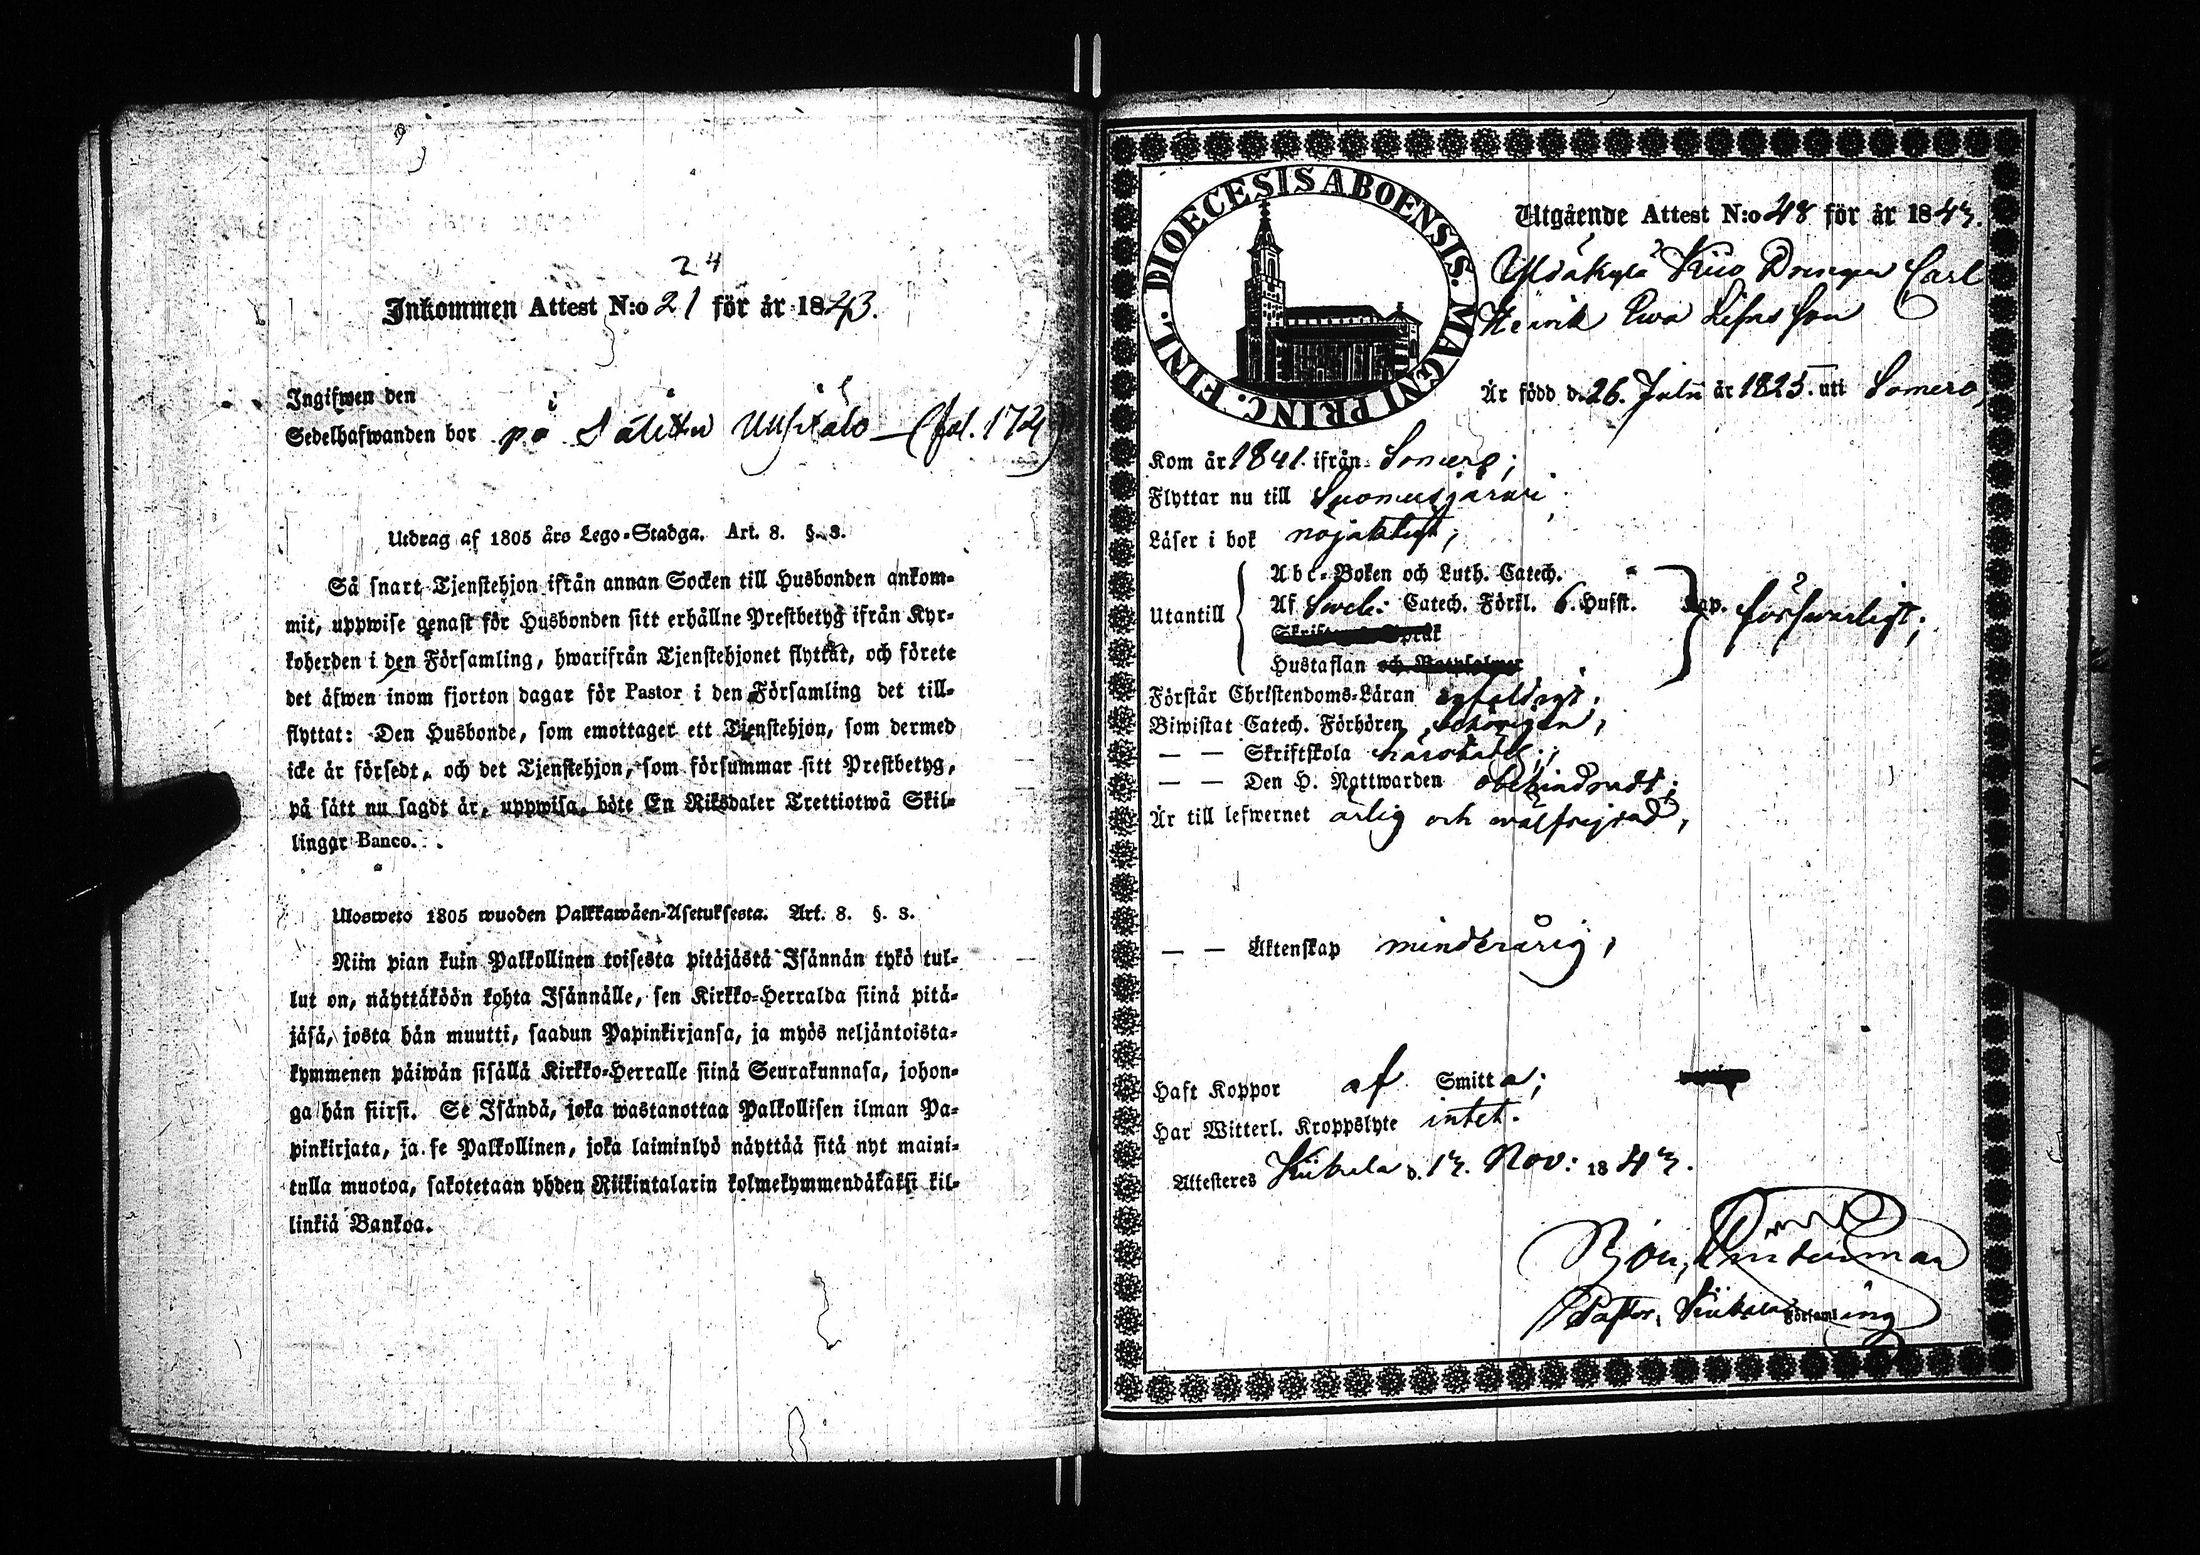 24
Inkommen Attest N:o 21 för år 1843.
Ingifwen den
Sedelhafwanden bor på (fol. 172)
Utdrag af 1805 års Lego-Stadga. Art. 8. §. 3.
Så snart Tjenstehjon ifrån annan Socken till Husbonden ankom-
mit, uppwise genast för Husbonden sitt erhållne Prestbetyg ifrån Kyr-
koherden i den Församling, hwarifrån Tjenstehjonet flyttat, och förete
det äfwen inom fjorton dagar för Pastor i den Församling det till-
flyttat: Den Husbonde, som emottager ett Tjenstehjon, som dermed
icke är försedt, och det Tjenstehjon, som försummar sitt Prestbetyg,
på sätt nu sagdt är, uppwisa, böte En Riksdaler Trettiotwå Skil-
lingar Banco.
Ulosweto 1805 wuoden Palkkawäen-Asetuksesta. Art. 8. §. 3.
Niin pian kuin Palkollinen toisesta pitäjästä Isännän tykö tul-
lut on, näyttäköön kohta Isännälle, sen Kirkko-Herralda siinä pitä-
jäsä, josta hän muutti, saadun Papinkirjansa, ja myös neljäntoista-
kymmenen päiwän sisällä Kirkko-Herralle siinä Seurakunnasa, johon-
ga hän siirsi. Se Isändä, joka wastanottaa Palkollisen ilman Pa-
pinkirjata, ja se Palkollinen, joka laiminlyö näyttää sitä nyt maini-
tulla muotoa, sakotetaan yhden Riikintalarin kolmekymmendäkaksi kil-
linkiä Bankoa.
DIOECESIS ABOENSIS. MAGNI PRINC. FINL.
Utgående Attest N:o 48 för år 1843.
Drengen Carl
Henrik Ewa Lisas son
Är född d. 26. Julii år 1825. uti Somero,
Kom år 1841. ifrån Somero;
Flyttar nu till Suomusjärwi
Läser i bok nöjaktigt,
Abc-Boken och Luth. Catech.
Utantill Af Sweb. Catech. Förkl. 6. Hufst. Kap. försvarligt;
Skriftens Språk
Hustaflan och Botpsalmer
Förstår Christendoms-Läran enfaldigt;
Biwistat Catech. Förhören behörigen,
— — Skriftskola
— — Den H. Nattwarden obehindradt;
Är till lefwernet ärlig och wälfrejdad,
— — Äktenskap minderårig,
Haft Koppor af Smitta;
Har Witterl. Kroppslyte intet.
Attesteres Kiikala d. 13. Nov: 1843.
Pastor, Kiikala Församling